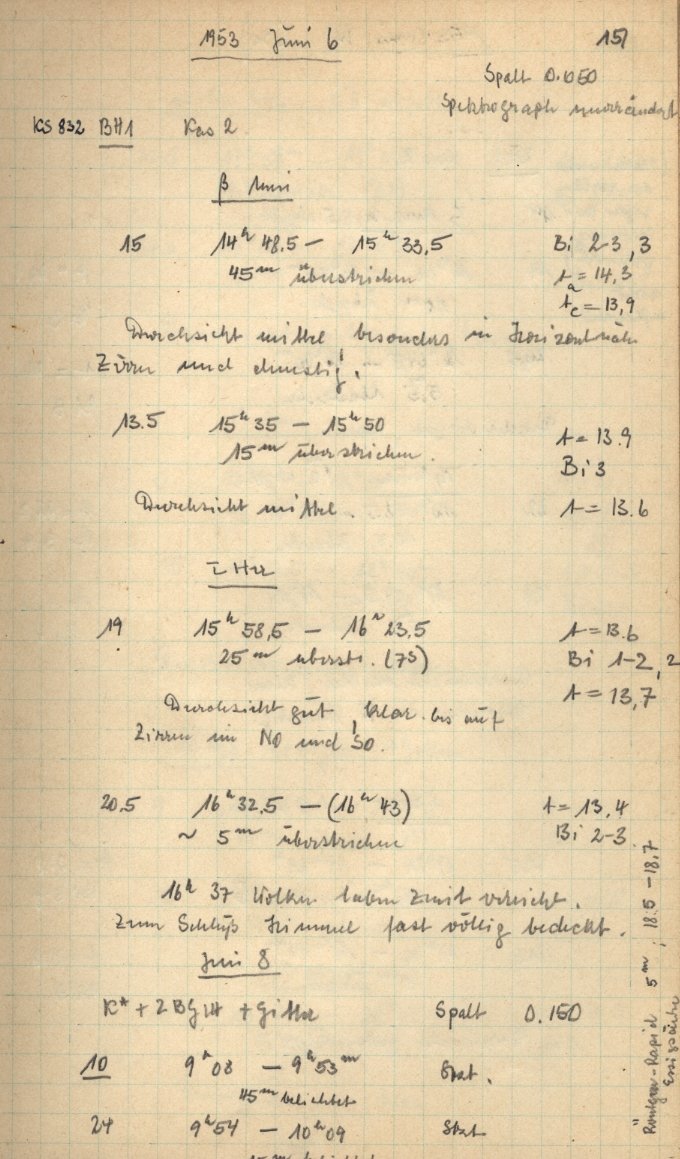 1953 Juni 6
151
Spalt 0.050
Spektrograph unverändert
KS 832 BH1 Kas 2
β
15 14ʰ 48.5 — 15ʰ 33,5 Bi 2-3, 3
45ᵐ überstrichen tₐ = 14,3
t_c = 13,9
Durchsicht mittel, besonders in Horizontnähe
Zirren und dunstig.
13.5 15ʰ 35 — 15ʰ 50 t = 13.9
15ᵐ überstrichen. Bi 3
Durchsicht mittel. t = 13.6
Her
19 15ʰ 58,5 — 16ʰ 23,5 t = 13.6
25ᵐ überstr. (75) Bi 1-2, 2
t = 13,7
Durchsicht gut, klar bis auf
Zirren im NO und SO.
20.5 16ʰ 32.5 — (16ʰ 43) t = 13,4
~ 5ᵐ überstrichen Bi 2-3
16ʰ 37 Wolken haben Zenit erreicht.
Zum Schluß Himmel fast völlig bedeckt.
Juni 8
K* + 2 BG + Gitter Spalt 0.150
10 9ʰ 08 — 9ʰ 53ᵐ
45ᵐ belichtet
24 9ʰ 54 — 10ʰ 09
15ᵐ belichtet
Röntgen-Rapid 5ᵐ; 18.5 - 18,7
Essigsäure